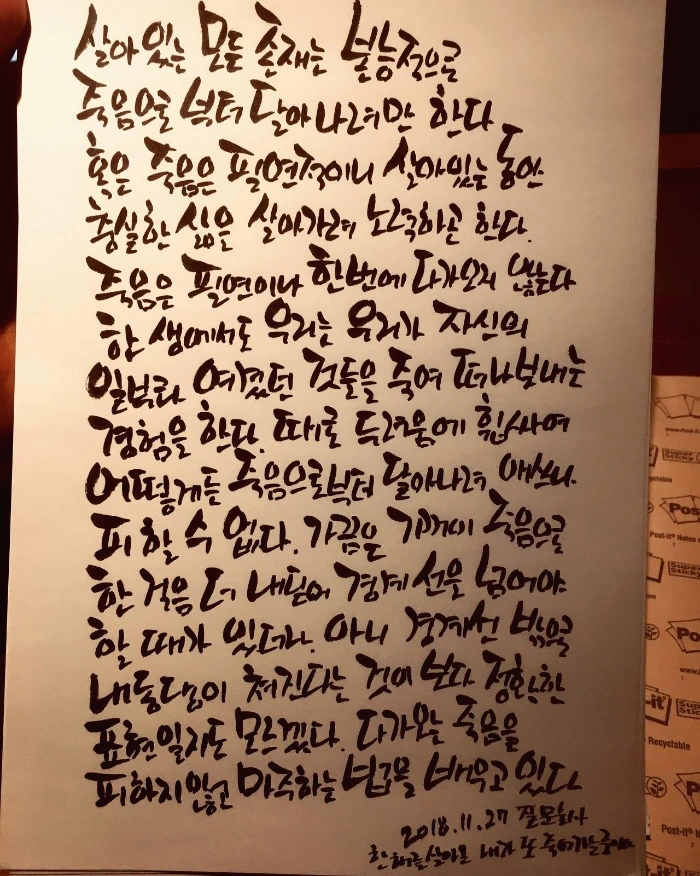 살아 있는 모든 존재는 본능적으로
죽음으로부터 달아나려만 한다
혹은 죽음은 필연적이니 살아있는 동안
충실한 삶을 살아가려 노력하곤 한다.
죽음은 필연이나 한번에 다가오지 않는다
한 생에서도 우리는 우리가 자신의
일부라 여겼던 것들을 죽여 떠나보내는
경험을 한다. 때로 두려움에 휩싸여
어떻게든 죽음으로부터 달아나려 애쓰나.
피할 수 없다. 가끔은 기꺼이 죽음으로
한 걸음 더 내딛어 경계선을 넘어야
할 때가 있더라. 아니 경계선 밖으로
내동댕이 쳐진다는 것이 보다 정확한
표현일지도 모르겠다. 다가오는 죽음을
피하지않고 마주하는 법을 배우고 있다
2018.11.27
한해를 살아온 내가 또 죽어가는 중
Post-it
www.Post-it
Super Sticky
Post-it® Notes
Recyclable